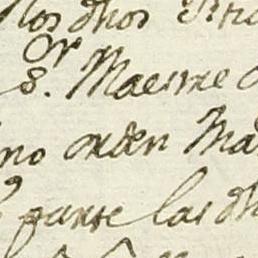 los dhos
or
s. Maestre
no orden Ma
parte las dh